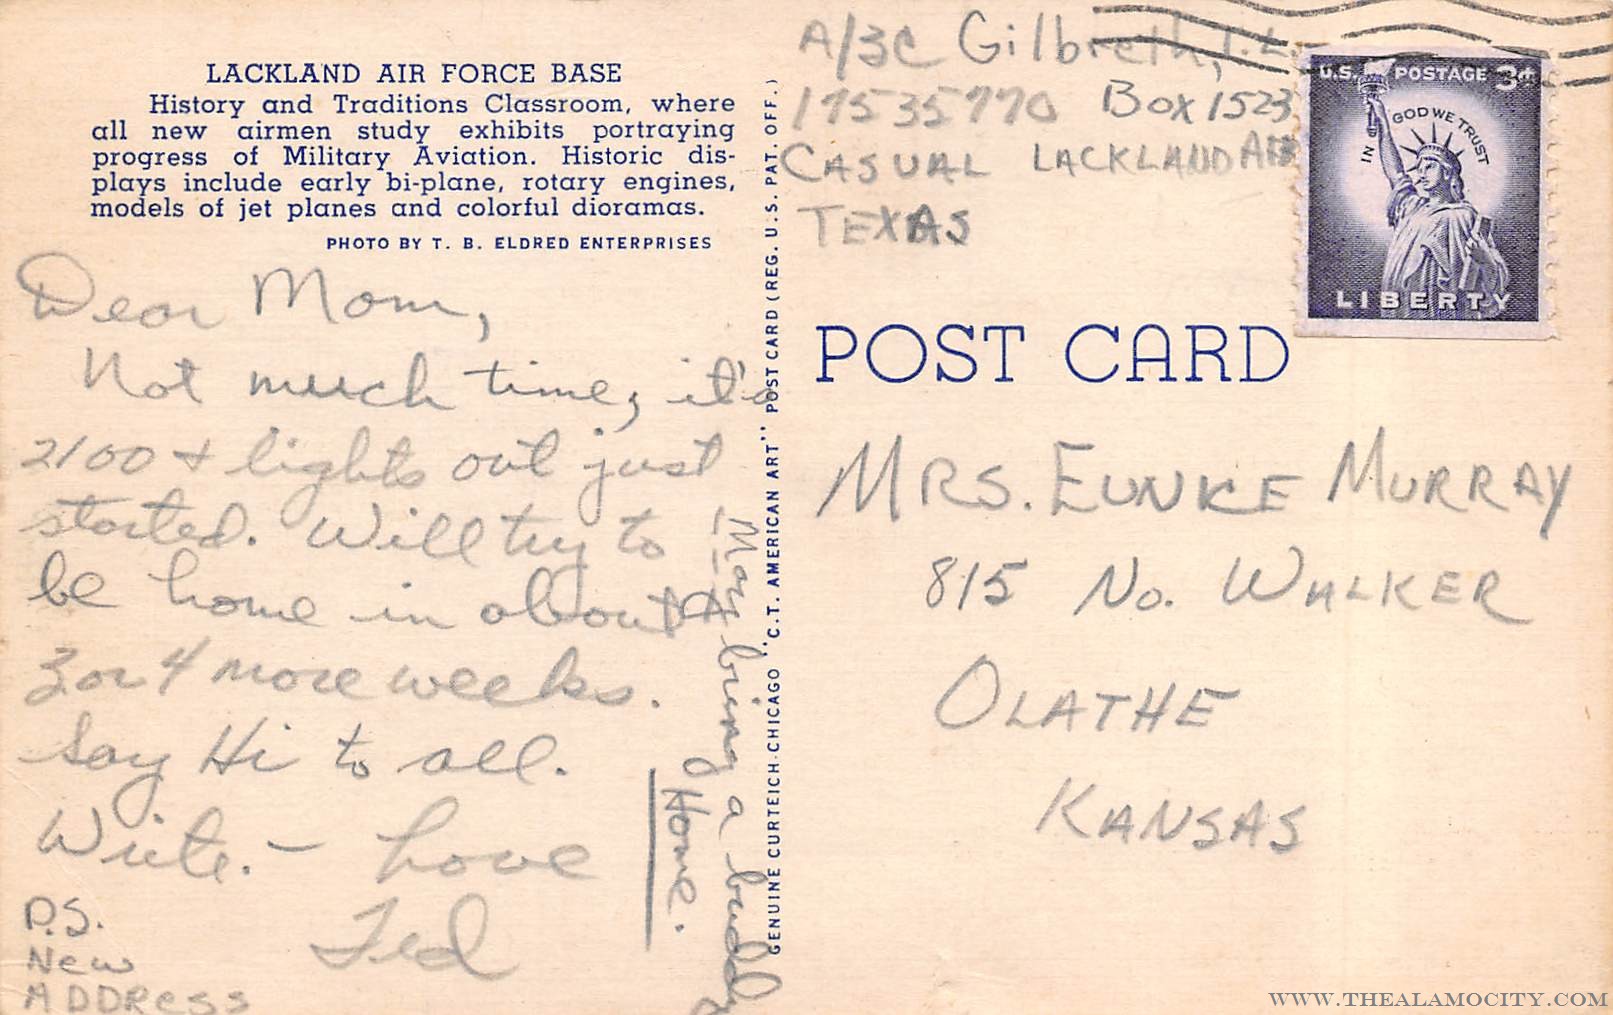 LACKLAND AIR FORCE BASE
History and Traditions Classroom, where
all new airmen study exhibits portraying
progress of Military Aviation. Historic dis-
plays include early bi-plane, rotary engines,
models of jet planes and colorful dioramas.
PHOTO BY T. B. ELDRED ENTERPRISES
Dear Mom,
Not much time, it's
2100 + lights out just
started. Will try to
be home in about
3 or 4 more weeks.
Say Hi to all.
Write. — Love
Ted
P.S.
New
ADDRess
May bring a buddy
Home.
GENUINE CURTEICH-CHICAGO "C.T. AMERICAN ART" POST CARD (REG. U.S. PAT. OFF.)
A/3C Gilbreth,
17535770 Box 1523
CASUAL LACKLAND AFB
TEXAS
U.S. POSTAGE 3¢
IN GOD WE TRUST
LIBERTY
POST CARD
MRS. EUNICE MURRAY
815 No. WALKER
OLATHE
KANSAS
WWW.THEALAMOCITY.COM